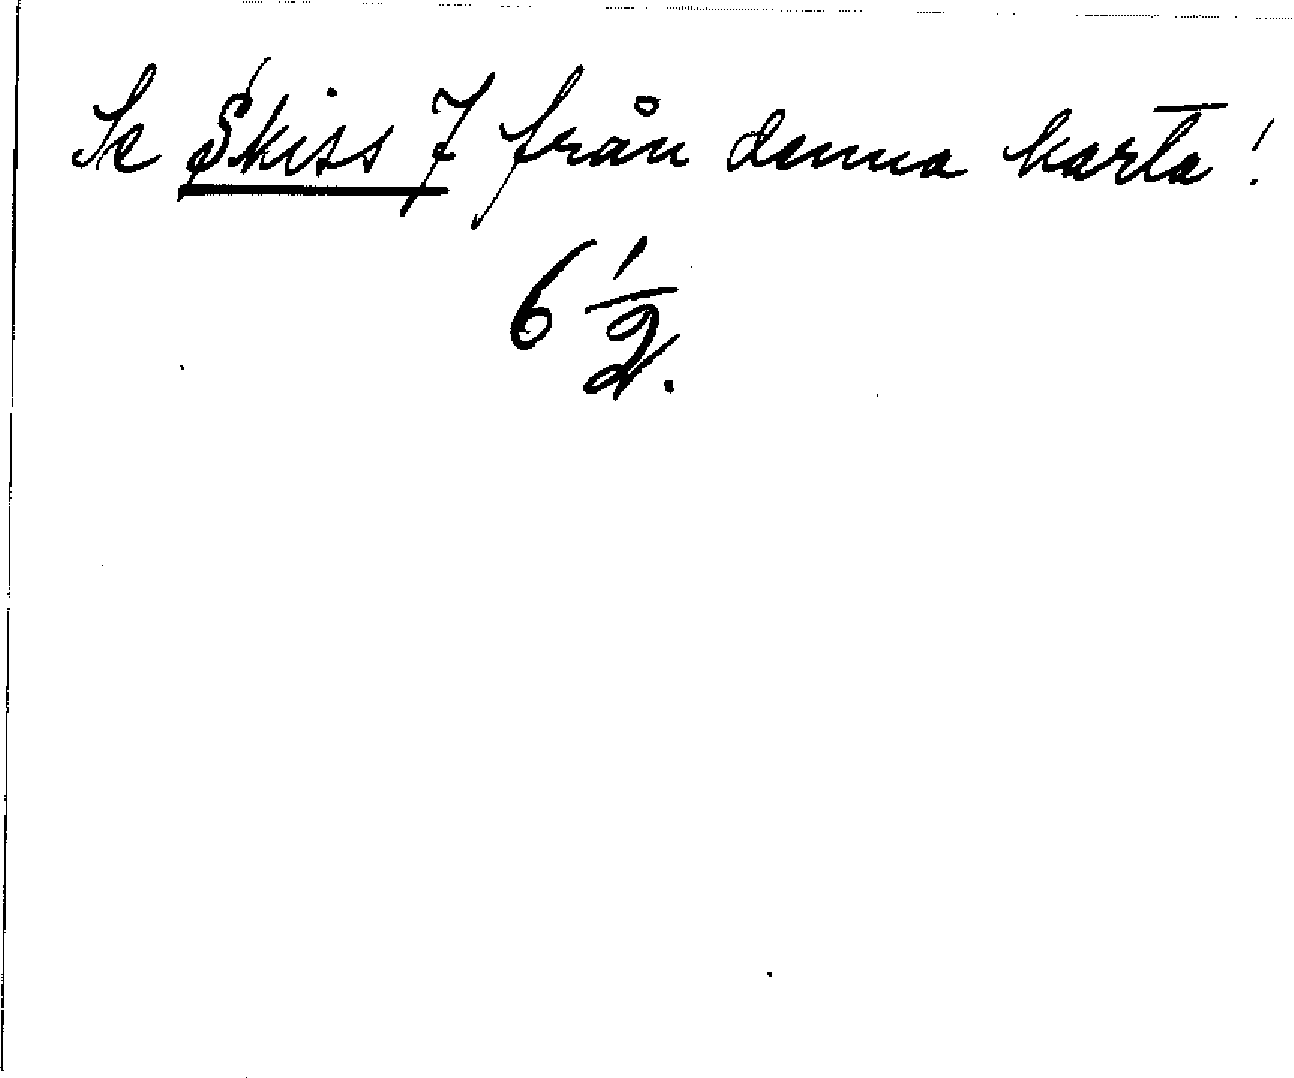 Se Skiss 7 från denna karta!
6 1/2.